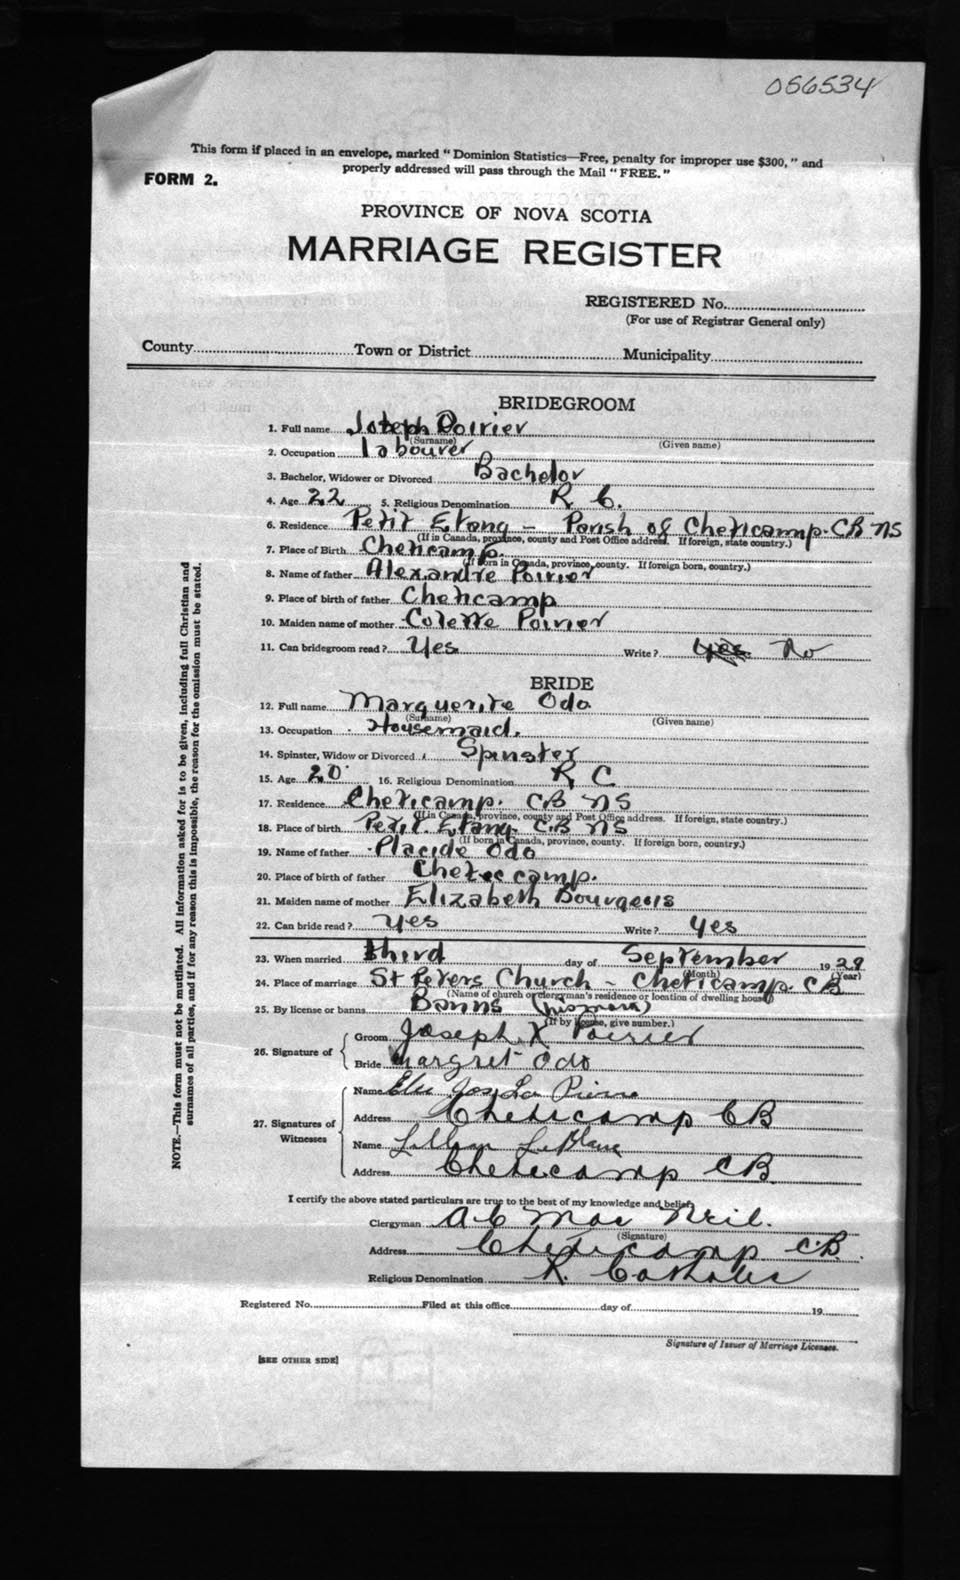 056534
This form if placed in an envelope, marked "Dominion Statistics—Free, penalty for improper use $300," and
properly addressed will pass through the Mail "FREE."
FORM 2.
PROVINCE OF NOVA SCOTIA
MARRIAGE REGISTER
REGISTERED No.
(For use of Registrar General only)
County Town or District Municipality
BRIDEGROOM
1. Full name Joseph Poirier
(Surname) (Given name)
2. Occupation Labourer
3. Bachelor, Widower or Divorced Bachelor
4. Age 22 5. Religious Denomination R C.
6. Residence Petit Etang - Parish of Cheticamp. CB NS
(If in Canada, province, county and Post Office address. If foreign, state country.)
7. Place of Birth Cheticamp.
(If born in Canada, province, county. If foreign born, country.)
8. Name of father Alexandre Poirier
9. Place of birth of father Cheticamp
10. Maiden name of mother Colette Poirier
11. Can bridegroom read? Yes Write? yes No
BRIDE
12. Full name Marguerite Odo
(Surname) (Given name)
13. Occupation Housemaid.
14. Spinster, Widow or Divorced Spinster
15. Age 20 16. Religious Denomination R C
17. Residence Cheticamp. CB NS
(If in Canada, province, county and Post Office address. If foreign, state country.)
18. Place of birth Petit Etang. CB NS
(If born in Canada, province, county. If foreign born, country.)
19. Name of father Placide Odo
20. Place of birth of father Cheteccamp.
21. Maiden name of mother Elizabeth Bourgeois
22. Can bride read? yes Write? yes
23. When married third day of September 1929
(Month) (Year)
24. Place of marriage St Peters Church - Cheticamp. CB
(Name of church or clergyman's residence or location of dwelling house)
25. By license or banns Banns (his mark)
(If by license, give number.)
26. Signature of Groom Joseph X Poirier
Bride Margret Odo
27. Signatures of Witnesses
Name Jos La Pierre
Address Cheticamp CB
Name Lillian LeBlanc
Address Cheticamp CB.
I certify the above stated particulars are true to the best of my knowledge and belief.
Clergyman A C MacNeil.
(Signature)
Address Cheticamp C.B.
Religious Denomination R. Catholic
Registered No. Filed at this office day of 19
Signature of Issuer of Marriage Licenses.
[SEE OTHER SIDE]
NOTE.—This form must not be mutilated. All information asked for is to be given, including full Christian and
surnames of all parties, and if for any reason this is impossible, the reason for the omission must be stated.